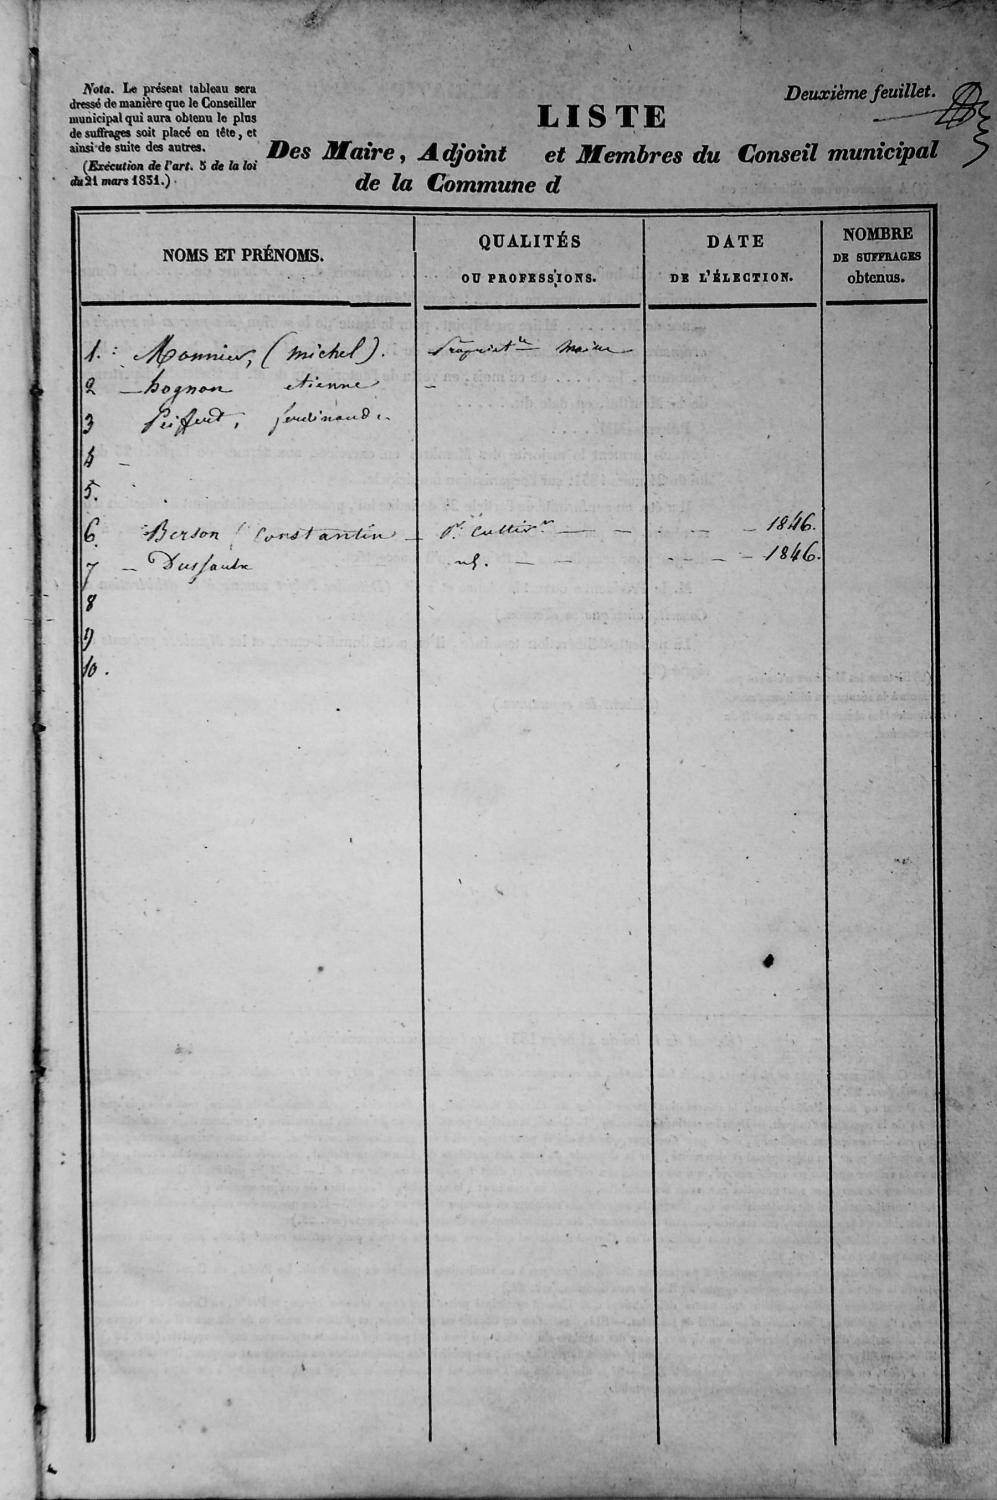 Nota. Le présent tableau sera
dressé de manière que le Conseiller
municipal qui aura obtenu le plus
de suffrages soit placé en tête, et
ainsi de suite des autres.
(Exécution de l'art. 5 de la loi
du 21 mars 1831.)
Deuxième feuillet.
LISTE
Des Maire, Adjoint et Membres du Conseil municipal
de la Commune d
NOMS ET PRÉNOMS.
QUALITÉS
OU PROFESSIONS.
DATE
DE L'ÉLECTION.
NOMBRE
DE SUFFRAGES
obtenus.
1. Monnier, (Michel). Propriét.re Maire
2 hognon etienne
3 Peiffert, ferdinand
4
5.
6. Berson Constantin Pre Cultiv.r 1846.
7 Dussautx id. 1846.
8
9
10.